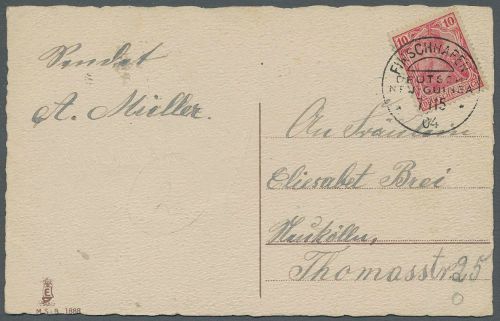 Sendet
A. Müller.
10 10
FINSCHHAFEN
DEUTSCH
NEU-GUINEA
04
An Fräulein
Eliesabet Brei
Neukölln,
Thomasstr. 25
M.S.i.B. 1888